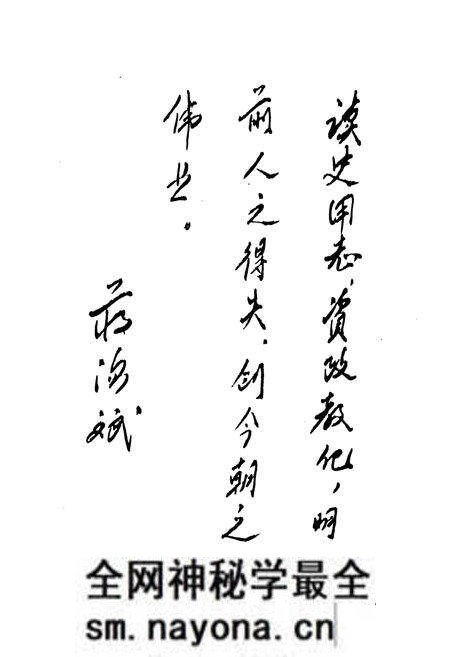 读史用志，资政教化，明
前人之得失，创今朝之
伟业。
蒋海斌
全网神秘学最全
sm.nayona.cn